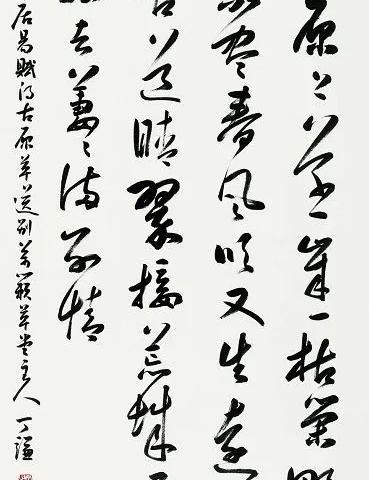 原上草一歲一枯榮野
不盡春風吹又生遠
古道晴翠接荒城又
去萋々滿別情
居易賦得古原草送別 草堂主人 丁